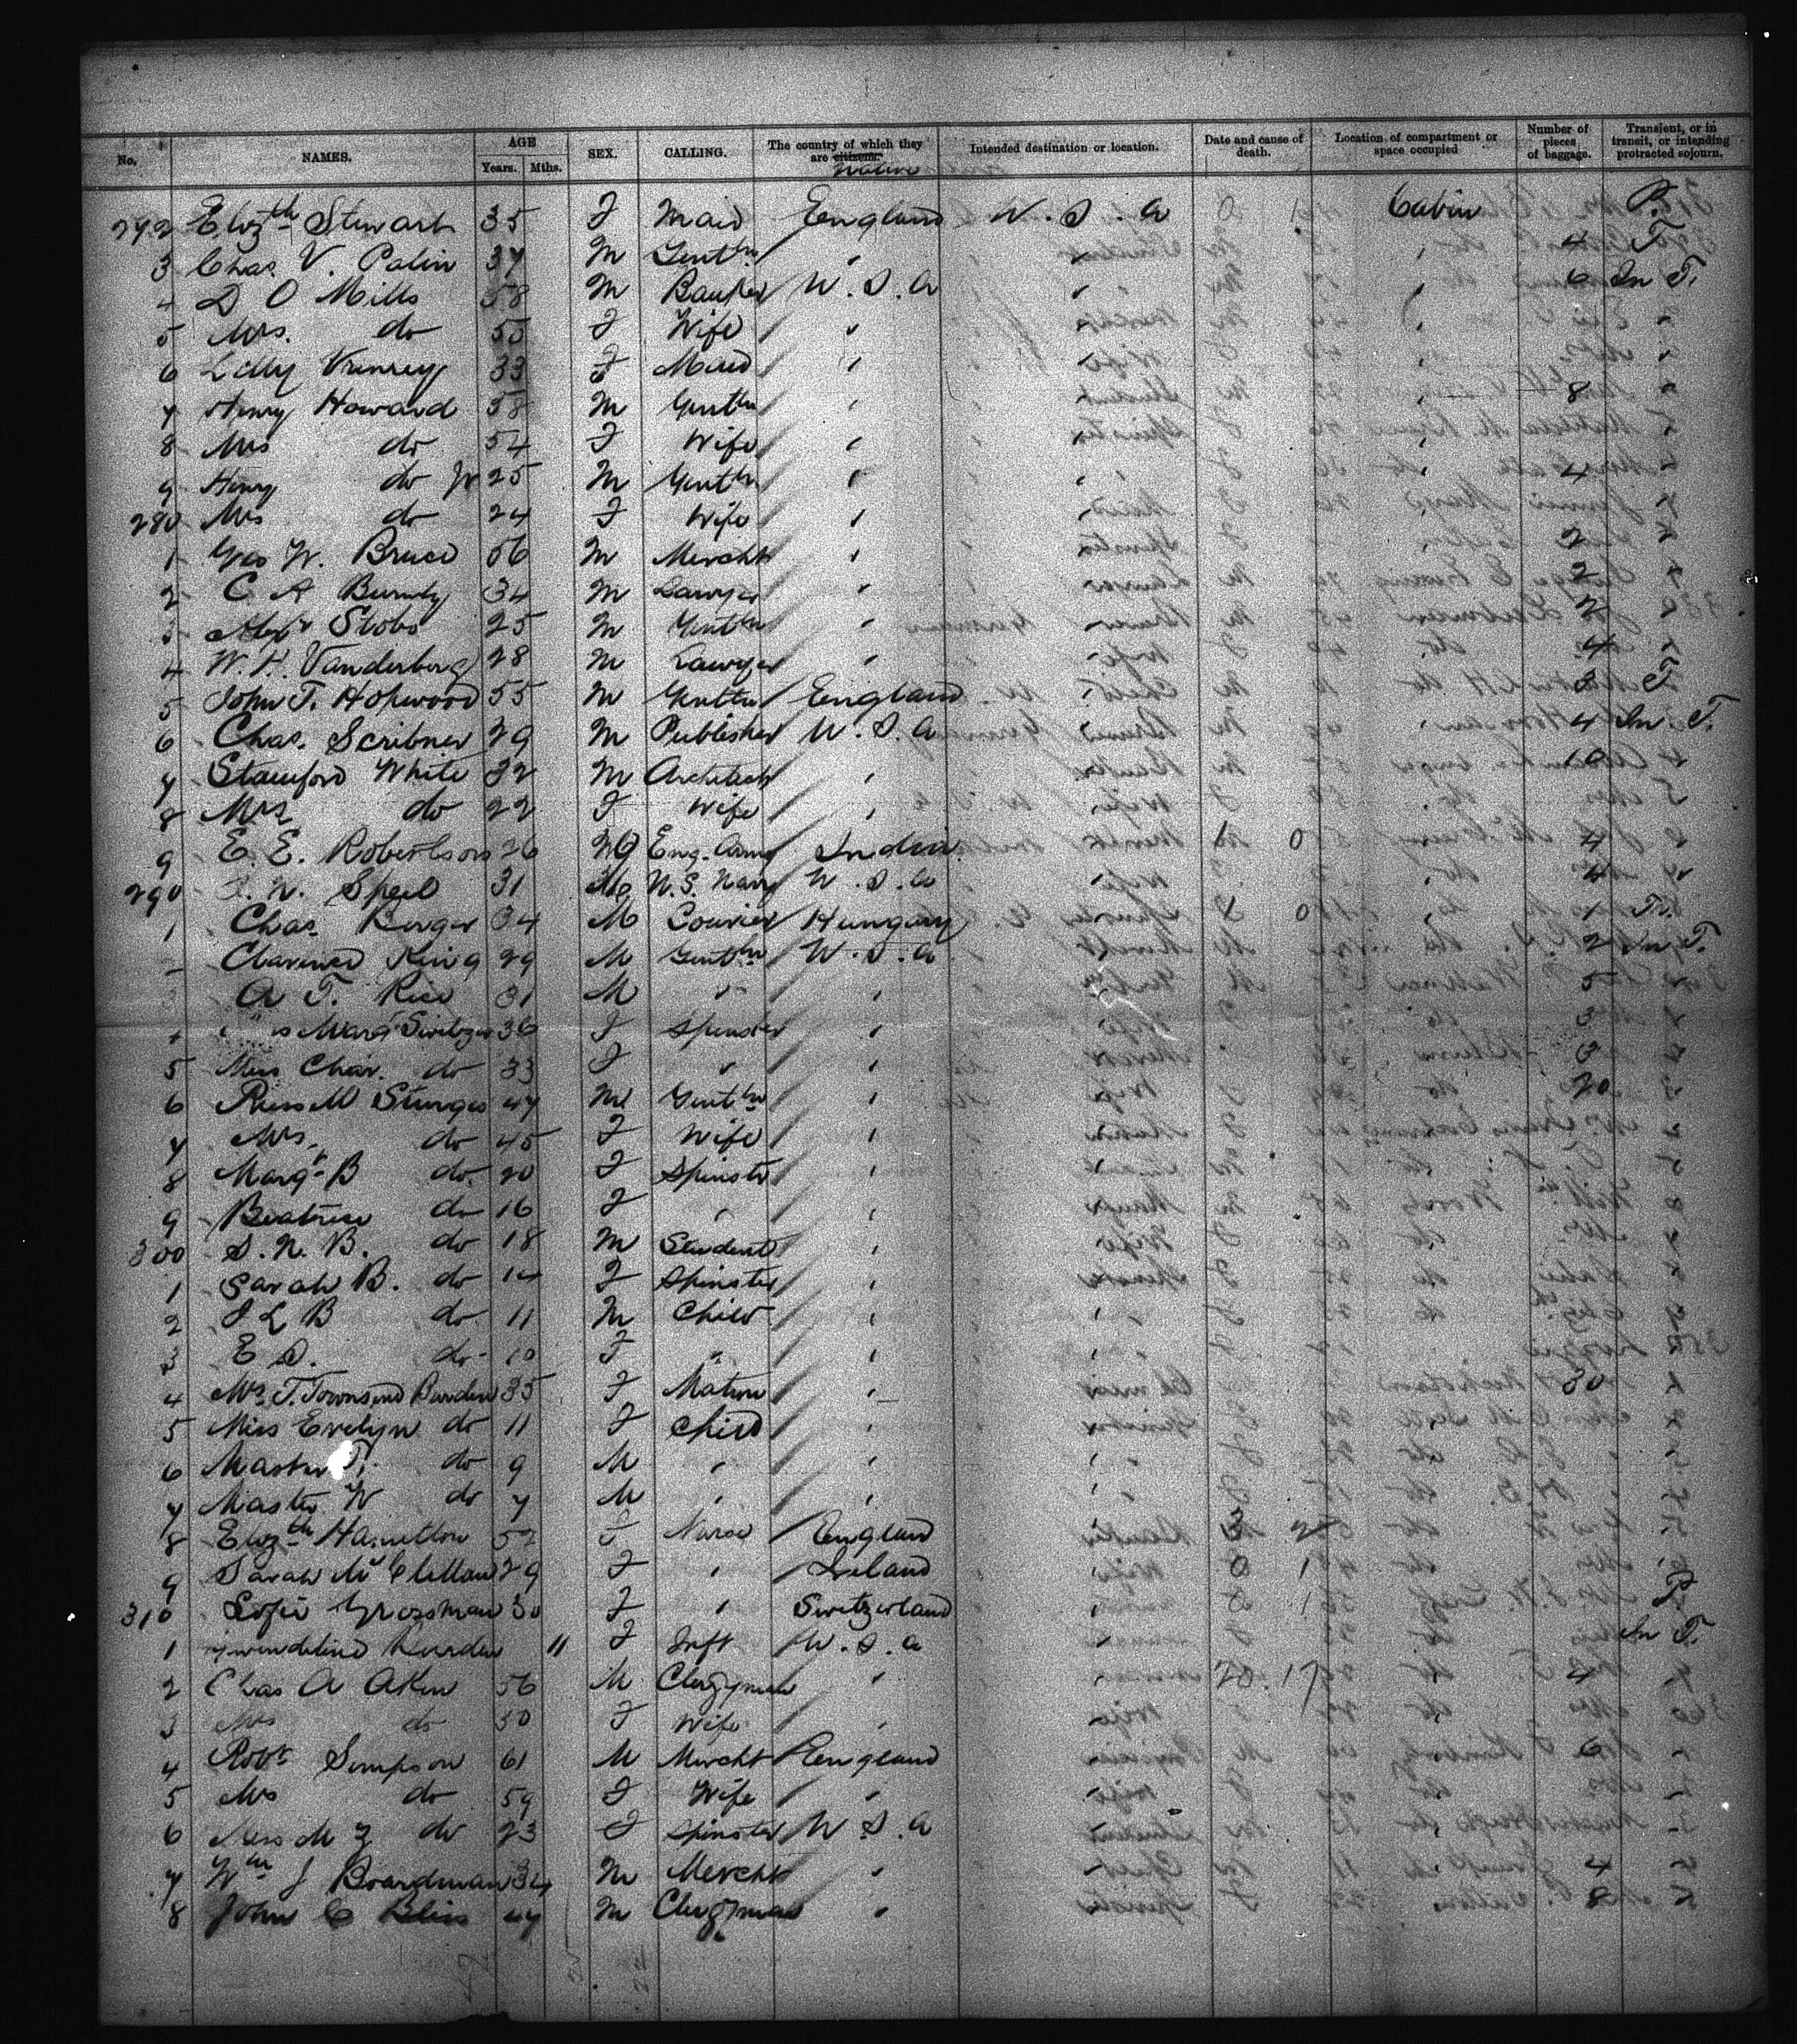 No. NAMES. AGE Years. Mths. SEX. CALLING. The country of which they are citizens. Native Intended destination or location. Date and cause of death. Location of compartment or space occupied Number of pieces of baggage. Transient, or in transit, or intending protracted sojourn.
272 Elizth Stewart 35 F Maid England U.S.A Cabin P.
3 Chas. V. Palin 37 M Gentln " " " 4 T.
4 D O Mills 58 M Banker U.S.A " " 6 In T.
5 Mrs. do 50 F Wife " " "
6 Lilly 33 F Maid " " "
7 Henry Howard 58 M Gentln " " " 8 "
8 Mrs do 54 F Wife " "
9 Henry do Jr 25 M Gentln " " " 4 "
280 Mrs do 24 F Wife " "
1 Geo W. Bruce 56 M Mercht " " " 2 "
2 C A 34 M Lawyer " 2 "
3 Alexr Stobo 25 M Gentln " " 2 "
4 W. H. Vanderberg 28 M Lawyer " " 4 "
5 John T. Hopwood 55 M Gentln England " 3 T.
6 Chas. Scribner 29 M Publisher U.S.A " " 4 In T.
7 Stamford White 32 M Architect " " 10 "
8 Mrs do 22 F Wife " "
9 E. E. Robertson 26 M Eng. Army India 1 0 4 "
290 Speel 31 M U.S. Navy U.S.A " 4 "
1 Chas Berger 34 M Courier Hungary 1 0 1 Tr.
Clarence King 29 M Gentln U.S.A 2 In T.
A T. Rice 31 M " " 5 "
36 F Spinster " 3 "
5 Miss Char. do 33 F " " 3 "
6 Russell Sturges 47 M Gentln " 20 "
7 Mrs. do 45 F Wife " "
8 Margt B do. 20 F Spinster " "
9 Beatrice do 16 F " " "
300 S. N. B. do 18 M Student " "
1 Sarah B. do 14 F Spinster " "
2 B do 11 M Child " "
3 E S. do 10 F " " "
4 Mrs. T. Townsend Burden 35 F Matron " 30 "
5 Miss Evelyn do 11 F Child " "
6 Master do 9 M " " "
7 Master W do 7 M " " "
8 Elizth Hamilton 52 F Nurse England 3 2
9 Sarah McClellan 29 F " Ireland 0 1 "
310 Sofie Grossman 30 F " Switzerland " 0 1 P.
1 Gwendeline Burden 11 F Inft U.S.A " In T.
2 Chas A Aken 56 M Clergyman " 20. 17 4 "
3 Mrs do 50 F Wife " "
4 Robt Simpson 61 M Mercht England " 6 "
5 Mrs do 59 F Wife " " "
6 Miss M do 23 F Spinster U.S.A "
7 Wm J Boardman 34 M Mercht " " 4 "
8 John C Bliss 47 M Clergyman " " 8 "